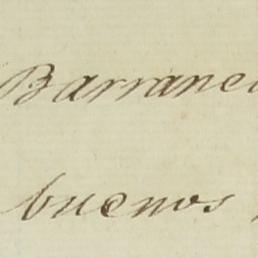 Barranc
buenos